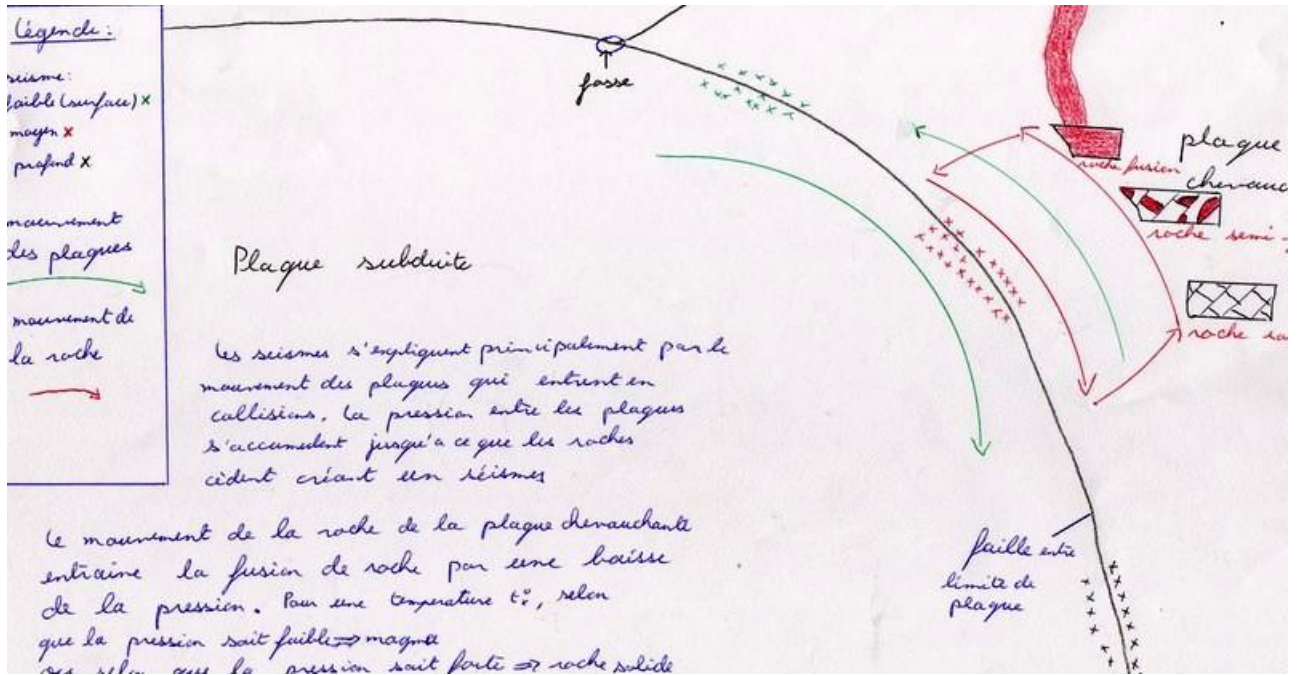 Légende :
seisme:
faible (surface) x
moyen x
profond x
mouvement
des plaques
mouvement de
la roche
fosse
Plaque subduite
plaque
chevauc
roche fusion
roche semi-
roche
Les seismes s'expliquent principalement par le
mouvement des plaques qui entrent en
collisions. La pression entre les plaques
s'accumulent jusqu'a ce que les roches
cèdent créant un séismes
faille entre
limite de
plaque
Le mouvement de la roche de la plaque chevauchante
entraine la fusion de roche par une baisse
de la pression. Pour une temperature t°, selon
que la pression soit faible => magma
ou selon que la pression soit forte => roche solide